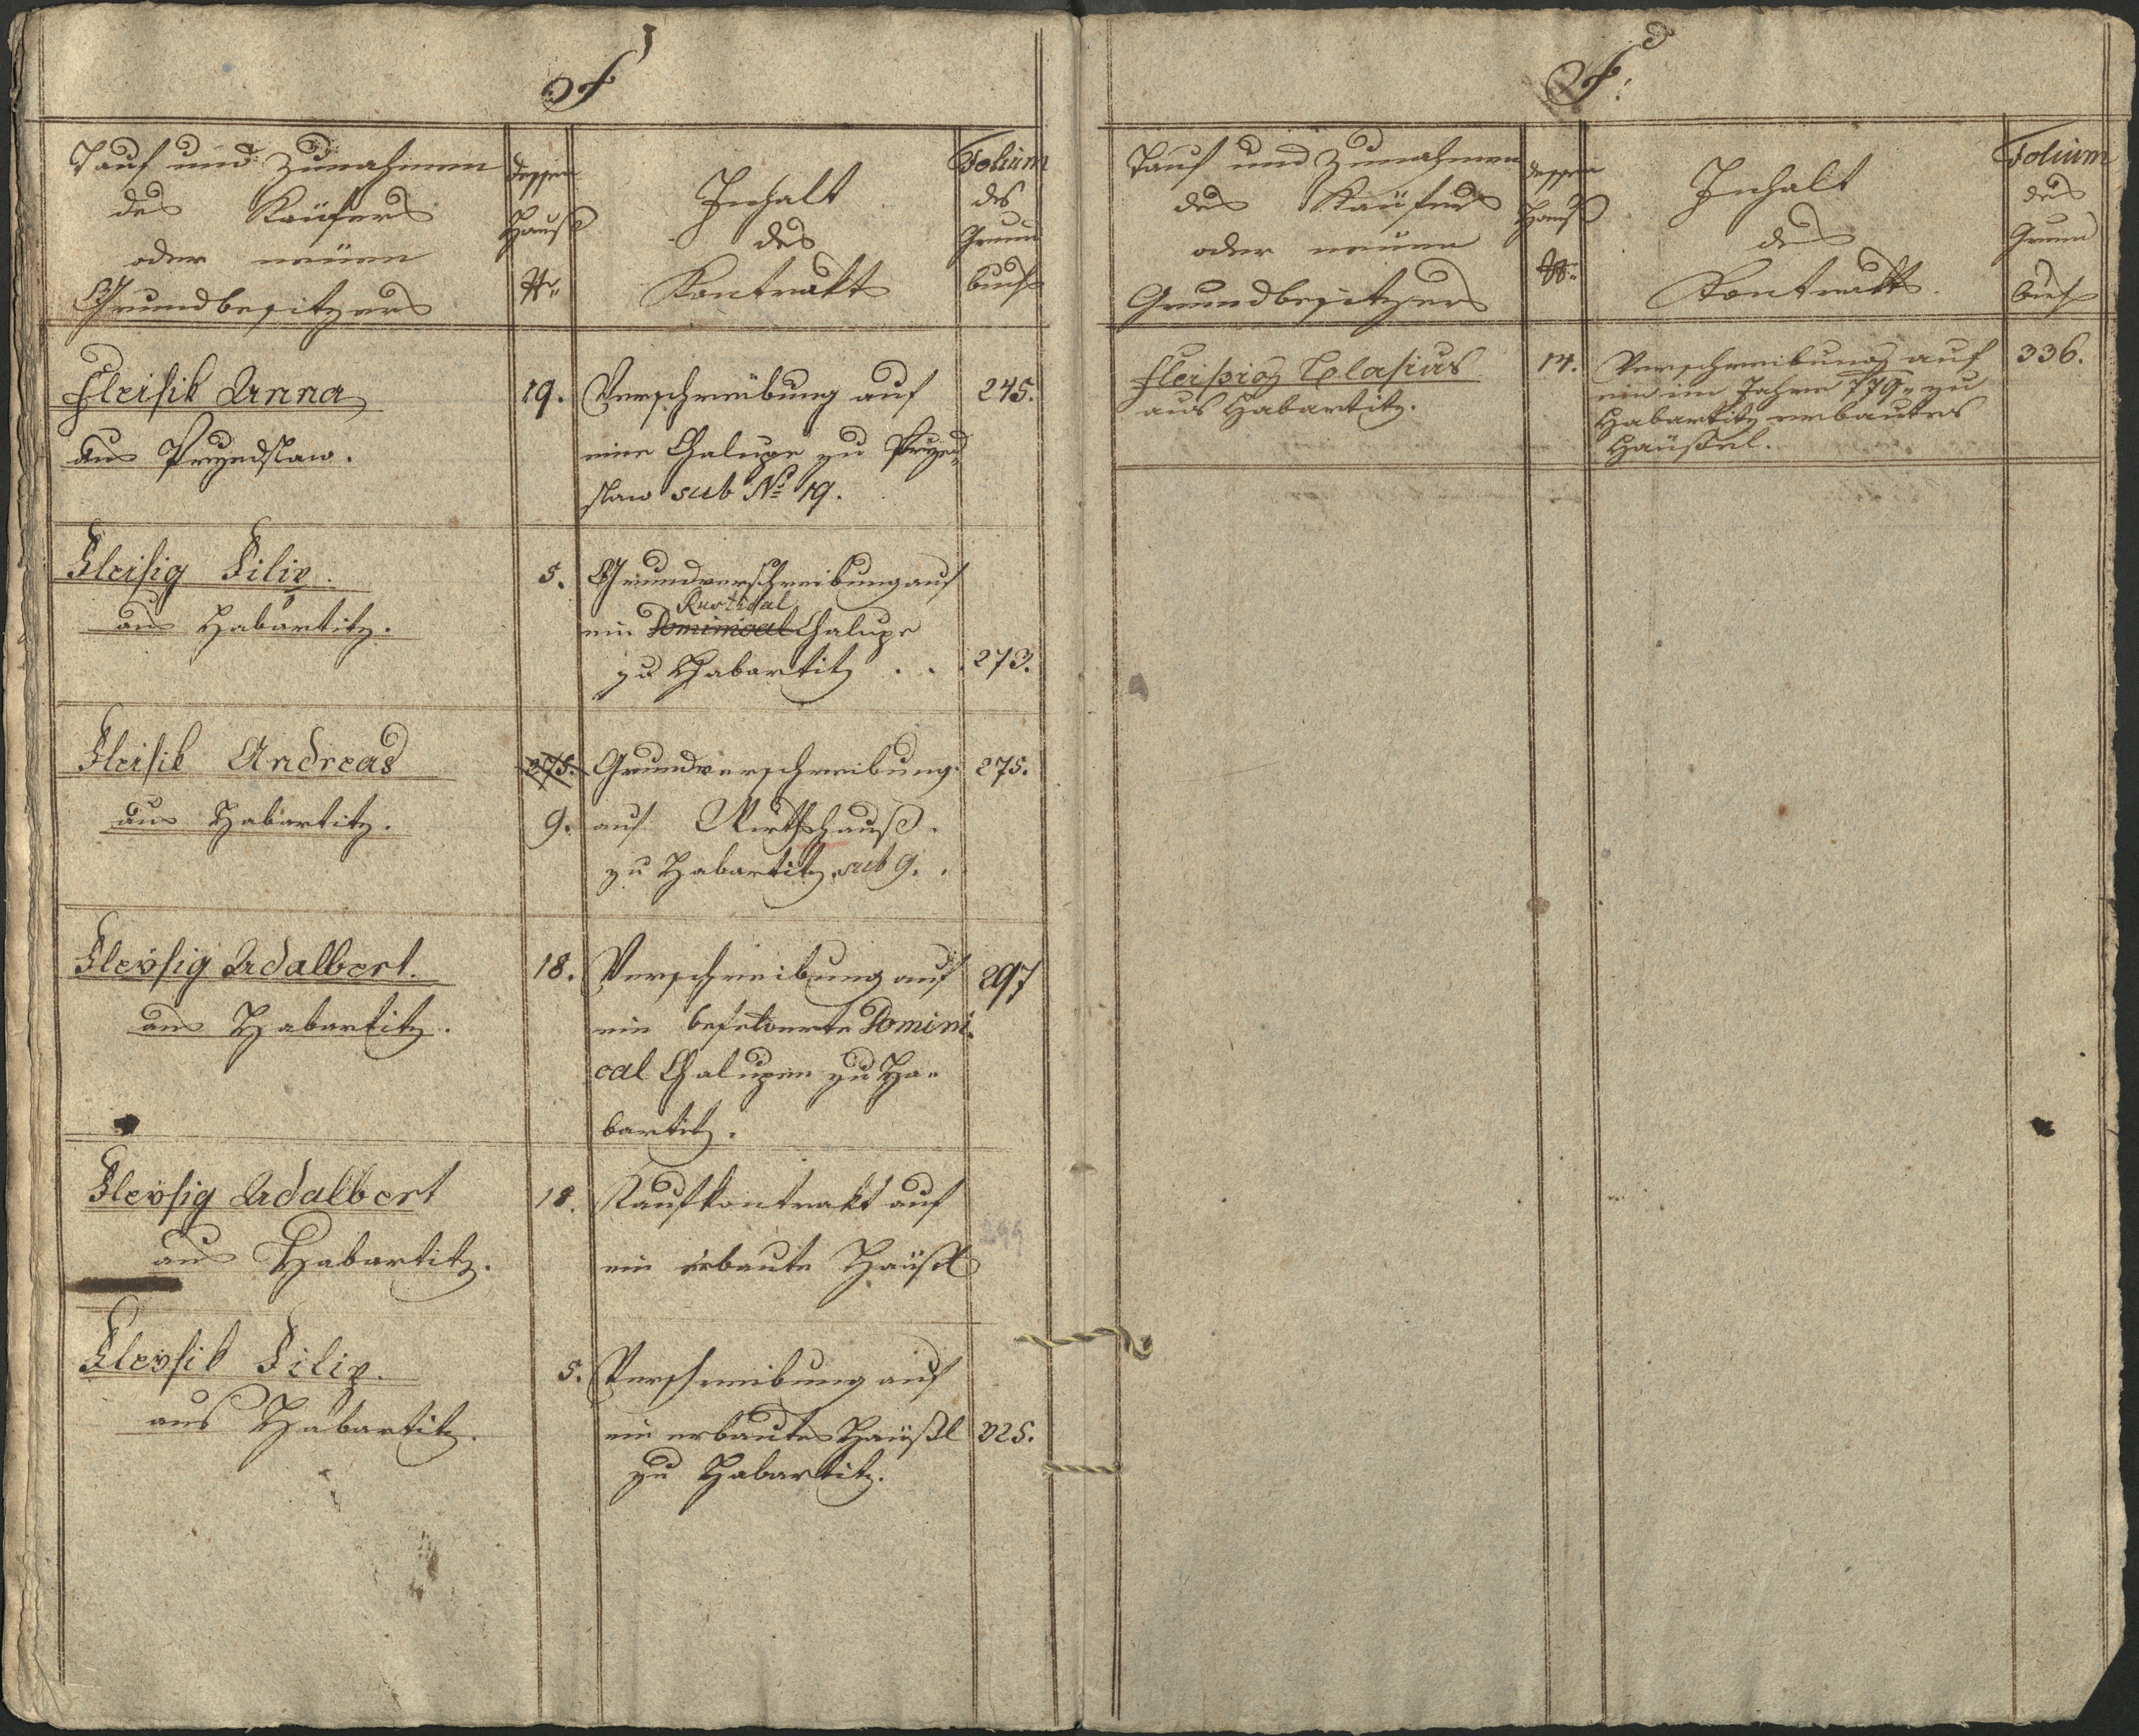 F
Tauf und Zunahmen
des Käufers
oder neüen
Grundbesitzers
dessen
Hauß
Nr.
Inhalt
des
Kontrakts
Folium
des
Grund
buchs
Fleisik Anna
aus Przedslaw.
19.
Verschreibung auf
eine Chalupe zu Przed
slaw sub No 19.
245.
Fleisig Filip.
aus Habartitz.
5.
Grundverschreibung auf
Rustikal
ein Dominical Chalupe
zu Habartitz . . .
273.
Fleisik Andreas
aus Habartitz.
275.
9.
Grundverschreibung
auf Wirthshauß.
zu Habartitz sub 9.
275.
Fleysig Adalbert.
aus Habartitz.
18.
Verschreibung auf
ein Domini
cal Chalupen zu Ha-
bartitz.
297
Fleysig Adalbert
aus Habartitz.
18.
Kaufkontrakt auf
ein erbaute Häußl
299
Fleysik Filip.
aus Habartitz.
5.
Verschreibung auf
ein erbautes Häußl
zu Habartitz.
325.
F.
Tauf und Zunahmen
des Käufers
oder neuen
Grundbesitzers
dessen
Hauß
Nr.
Inhalt
des
Kontrakts.
Folium
des
Grund
buchs
Fleissig Blasius
aus Habartitz.
14.
Verschreibung auf
ein im Jahre 779. zu
Habartitz erbautes
Häußel.
336.